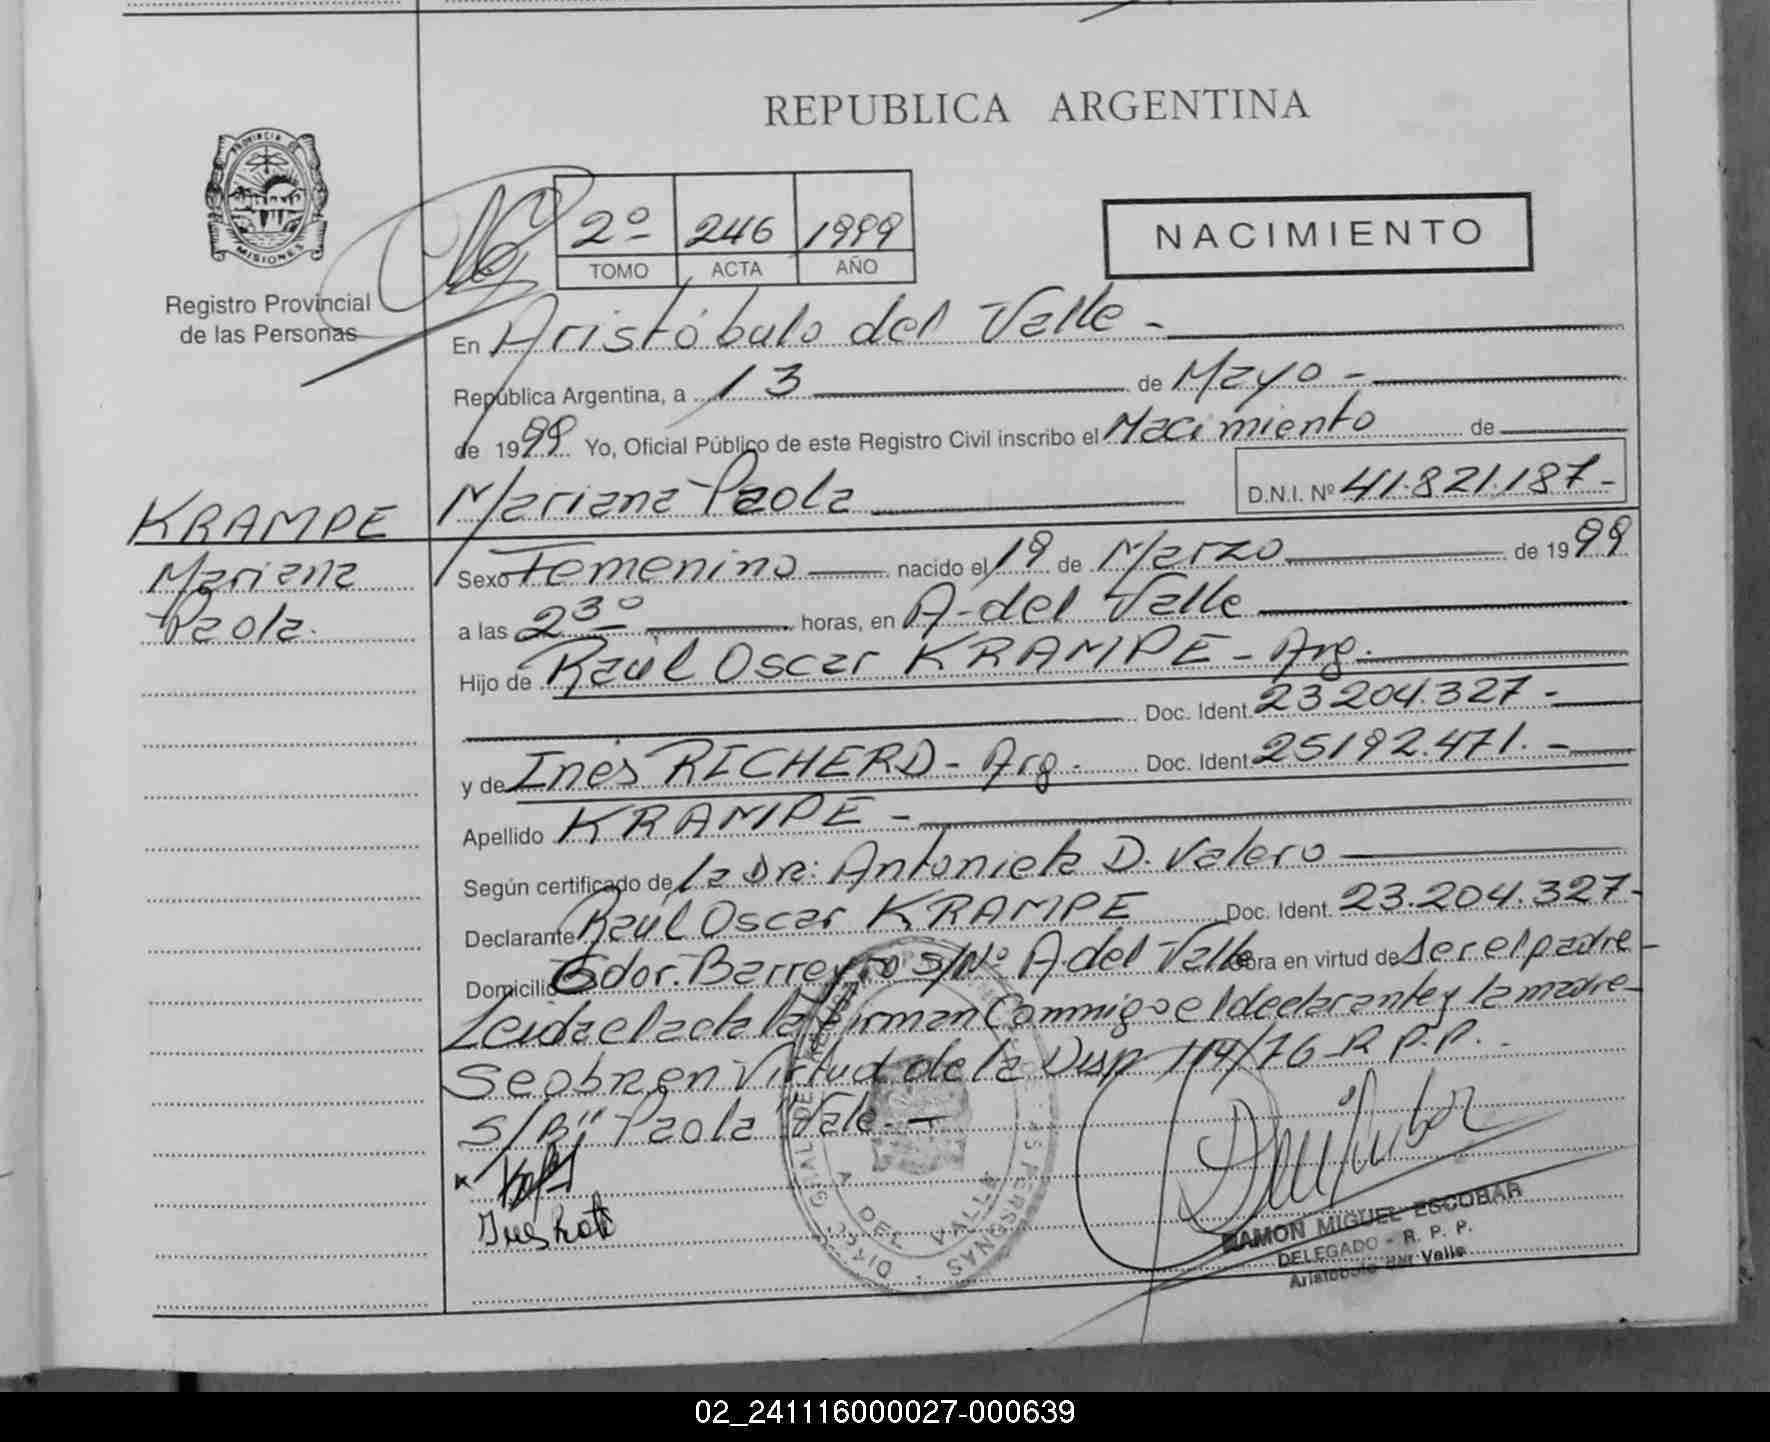 REPUBLICA ARGENTINA
PROVINCIA DE
MISIONES
Registro Provincial
de las Personas
2º 246 1999
TOMO ACTA AÑO
NACIMIENTO
En Aristóbulo del Valle -
República Argentina, a 13 de Mayo -
de 1999 Yo, Oficial Público de este Registro Civil inscribo el Nacimiento de
Mariana Paola D.N.I. Nº 41.821.187-
KRAMPE
Mariana
Paola.
Sexo Femenino nacido el 19 de Marzo de 1999
a las 23º horas, en A. del Valle
Hijo de Raúl Oscar KRAMPE - Arg.
Doc. Ident. 23204.327-
y de Inés RICHERD - Arg. Doc. Ident. 25192.471.-
Apellido KRAMPE -
Según certificado de la Dra: Antonieta D. Valero
Declarante Raúl Oscar KRAMPE Doc. Ident. 23.204.327-
Domicilio Gdor. Barreyro s/Nº A. del Valle obra en virtud de ser el padre
Leida el acta la firman Conmigo el declarante y la madre-
Se obra en Virtud de la Disp 114/76 R P.P.-
S/B "Paola" Vale.-
RAMON MIGUEL ESCOBAR
DELEGADO - R. P. P.
Aristobulo del Valle
A DEL VALLE
02_241116000027-000639